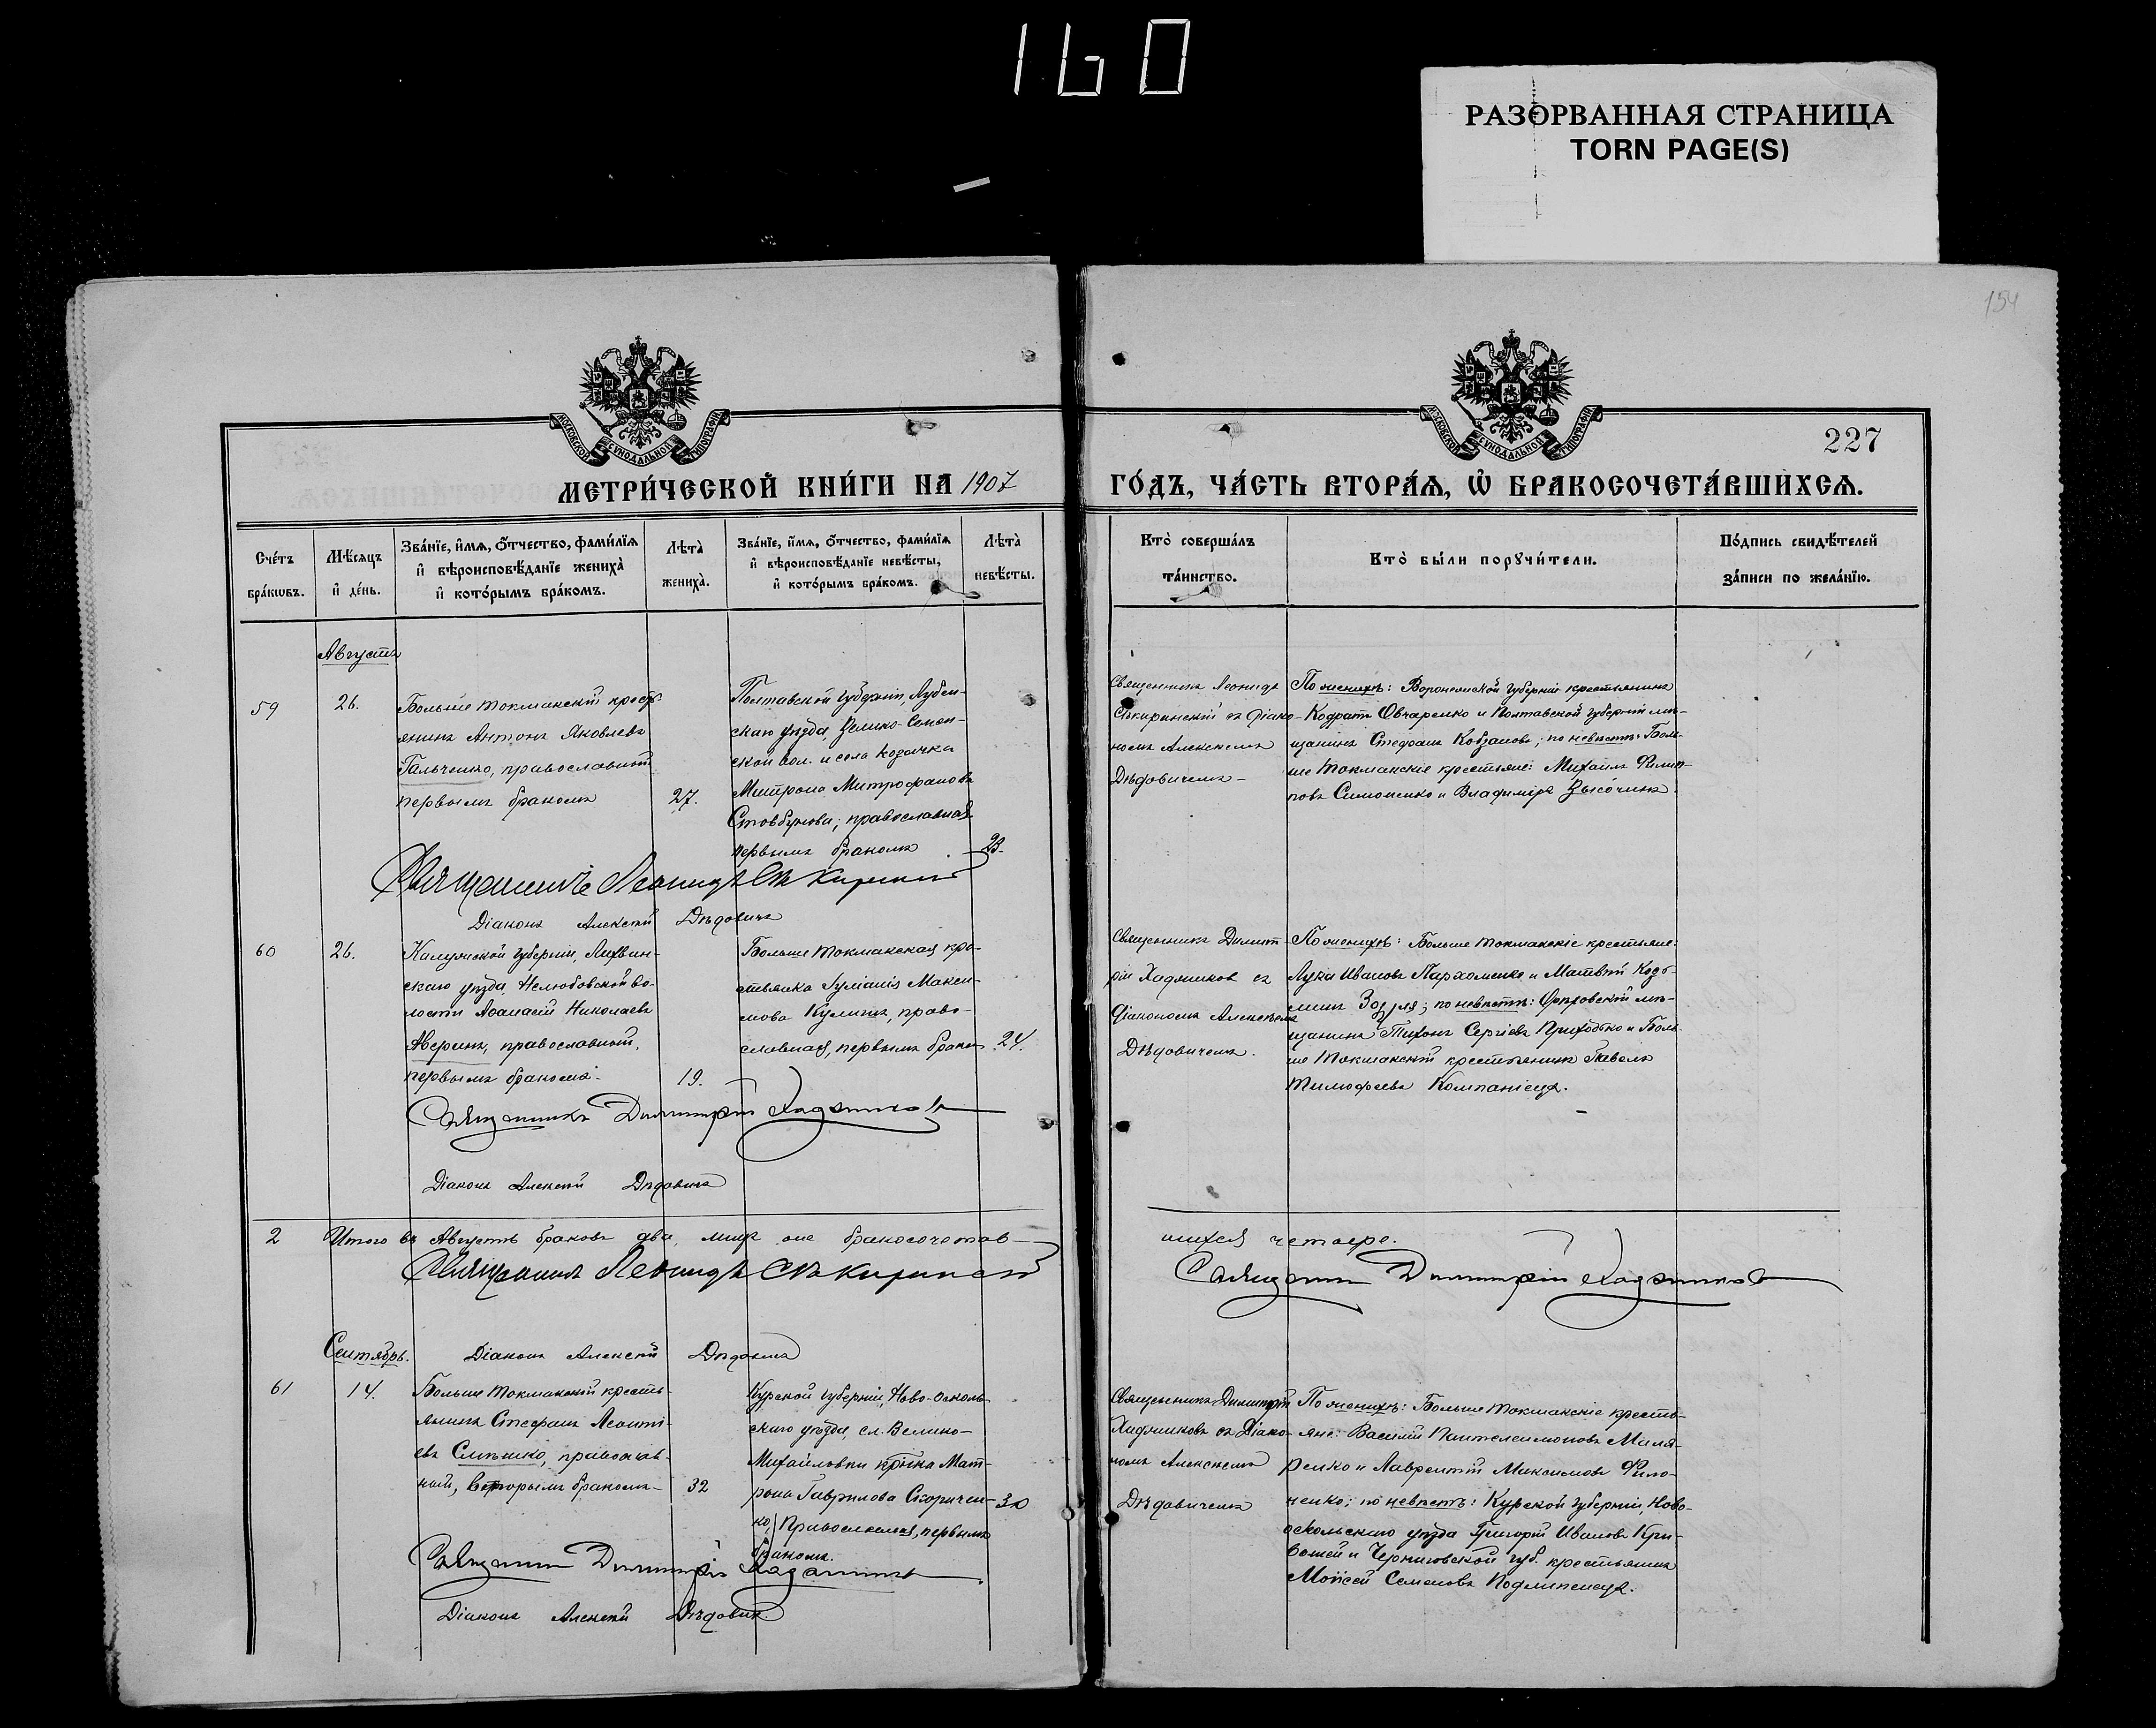 160
РАЗОРВАННАЯ СТРАНИЦА
TORN PAGE(S)
154
МОСКОВСКОЙ СѴНОДАЛЬНОЙ ТИПОГРАФІИ
МОСКОВСКОЙ СѴНОДАЛЬНОЙ ТИПОГРАФІИ
227
МЕТРИ́ЧЕСКОЙ КНИ́ГИ НА 1907
ГО́ДЪ, ЧА́СТЬ ВТОРА́Ѧ, Ѡ҆ БРАКОСОЧЕТА́ВШИХСѦ.
Сче́тъ бра́кѡвъ.
Мѣ́сяцъ и҆ де́нь.
Зва́нїе, и҆́мѧ, ѻ҆́тчество, фами́лїѧ и҆ вѣроисповѣ́данїе жениха̀ и҆ кото́рымъ бра́комъ.
Лѣта̀ жениха̀.
Зва́нїе, и҆́мѧ, ѻ҆́тчество, фами́лїѧ и҆ вѣроисповѣ́данїе невѣ́сты, и҆ кото́рымъ бра́комъ.
Лѣта̀ невѣ́сты.
Кто̀ соверша́лъ та́инство.
Кто̀ бы́ли порꙋчи́тели.
По́дпись свидѣ́телей за́писи по жела́нїю.
Августъ
59
26.
Больше Токмакскій кресть-
янинъ Антонъ Яковлевъ
Гальченко, православный
первымъ бракомъ
27.
Полтавской губерніи, Лубен-
скаго уѣзда,
ской вол. и села Козачки
Митрофанова
православная
первымъ бракомъ
23.
Священникъ Леонидъ
Сѣкиринскій съ Діако-
номъ Алексѣемъ
Дѣдовичемъ-
По женихѣ: Воронежской губерніи крестьянинъ
Кодратъ Овчаренко и Полтавской губерніи мѣ-
щанинъ Стефанъ Кобзановъ; по невѣстѣ: Боль-
ше Токмакскіе крестьяне: Михаилъ Филип-
повъ Симоненко и Владиміръ Высочинъ.
Священникъ Леонидъ Сѣкиринскій
Діаконъ Алексѣй Дѣдовичъ
60
26.
Калужской губерніи, Лихвин-
скаго уѣзда, Нелюбовской во-
лости Аѳанасій Николаевъ
Аверинъ, православный,
первымъ бракомъ-
19.
Больше Токмакская кре-
стьянка Іуліанія Макси-
мова Кулишъ, право-
славная, первымъ бракомъ
24.
Священникъ Димит-
рій Хаджиновъ съ
Діакономъ Алексѣемъ
Дѣдовичемъ.
По женихѣ: Больше Токмакскіе крестьяне:
Лука Ивановъ Пархоменко и Матвѣй Козь-
минъ Зозуля; по невѣстѣ: Орѣховскій мѣ-
щанинъ Тихонъ Сергіевъ Приходько и Боль-
ше Токмакскій крестьянинъ Павелъ
Тимофеевъ Компаніецъ.
Священникъ Димитрій Хаджиновъ
Діаконъ Алексѣй Дѣдовичъ
2
Итого въ Августѣ браковъ два, лицъ бракосочетав-
шихся четверо.
Священникъ Леонидъ Сѣкиринскій
Священникъ Димитрій Хаджиновъ
Сентябрь.
Діаконъ Алексѣй Дѣдовичъ
61
14.
Больше Токмакскій кресть-
янинъ Стефанъ Леонті-
евъ православ-
ный, вторымъ бракомъ-
32
Курской губерніи, Ново-Осколь-
скаго уѣзда, сл. Велико-
Михайловки кр-нка Мат-
рона Гаврилова Скоричен-
ко, Православная, первымъ
бракомъ.
30
Священникъ Димитрій
Хаджиновъ съ Діако-
номъ Алексѣемъ
Дѣдовичемъ
По женихѣ: Больше Токмакскіе кресть-
яне: Василій Пантелеимоновъ Маля-
ренко и Лаврентій Максимовъ Фило-
ненко; по невѣстѣ: Курской губерніи, Ново-
оскольскаго уѣзда Григорій Ивановъ Кри-
вошей и Черниговской губ. крестьянинъ
Моисей Семеновъ Подлипенецъ.
Священникъ Димитрій Хаджиновъ
Діаконъ Алексѣй Дѣдовичъ